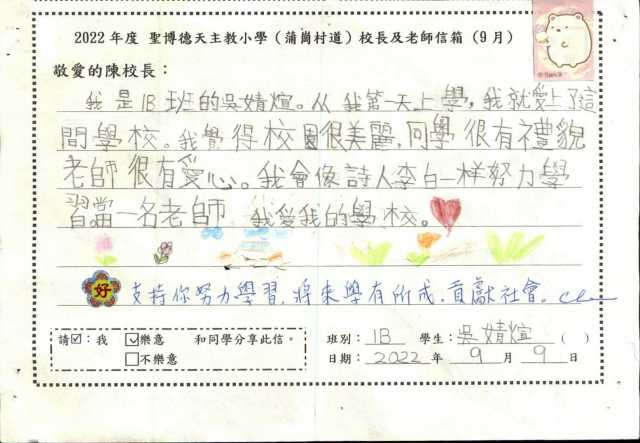 2022年度 聖博德天主教小學（蒲崗村道）校長及老師信箱（9月）
敬愛的陳校長：
我是1B班的吳婧煊。从我第一天上學，我就愛上了這
間學校。我覺得校園很美麗，同學很有禮貌
老師很有愛心。我會像詩人李白一样努力學
習當一名老師 我愛我的學校。
好 支持你努力學習，將來學有所成，貢獻社會。
請☑：我 ☑樂意 和同學分享此信。 班別：1B 學生：吳婧煊 ( )
□不樂意 日期：2022 年 9 月 9 日